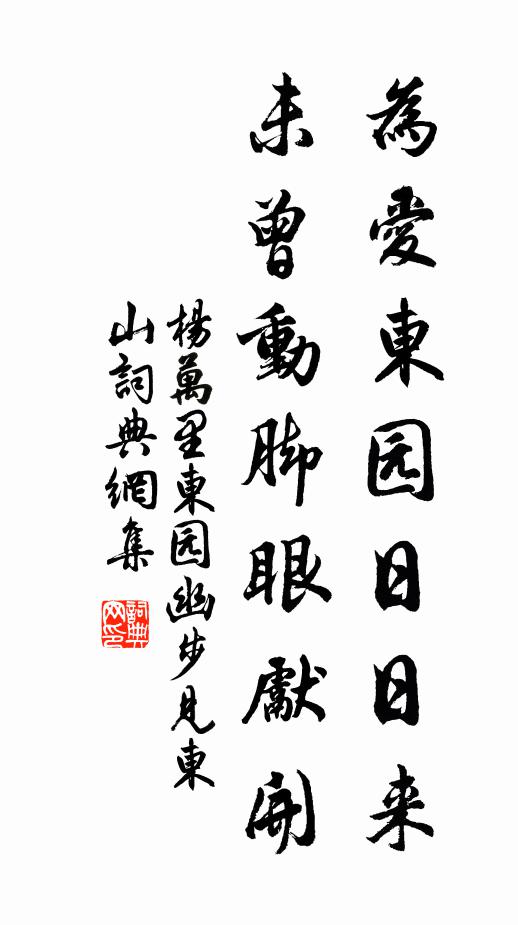 為愛東园日日来
未曾動脚眼獻開
楊萬里東园幽步見東
山詞典網集
詞典網印